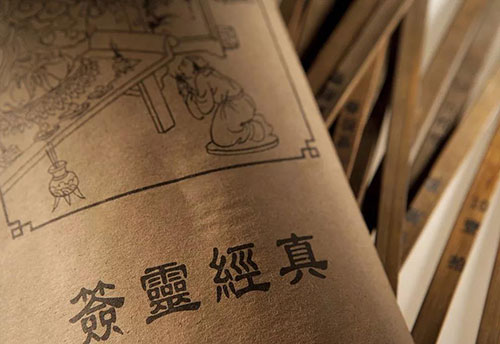 真經靈簽